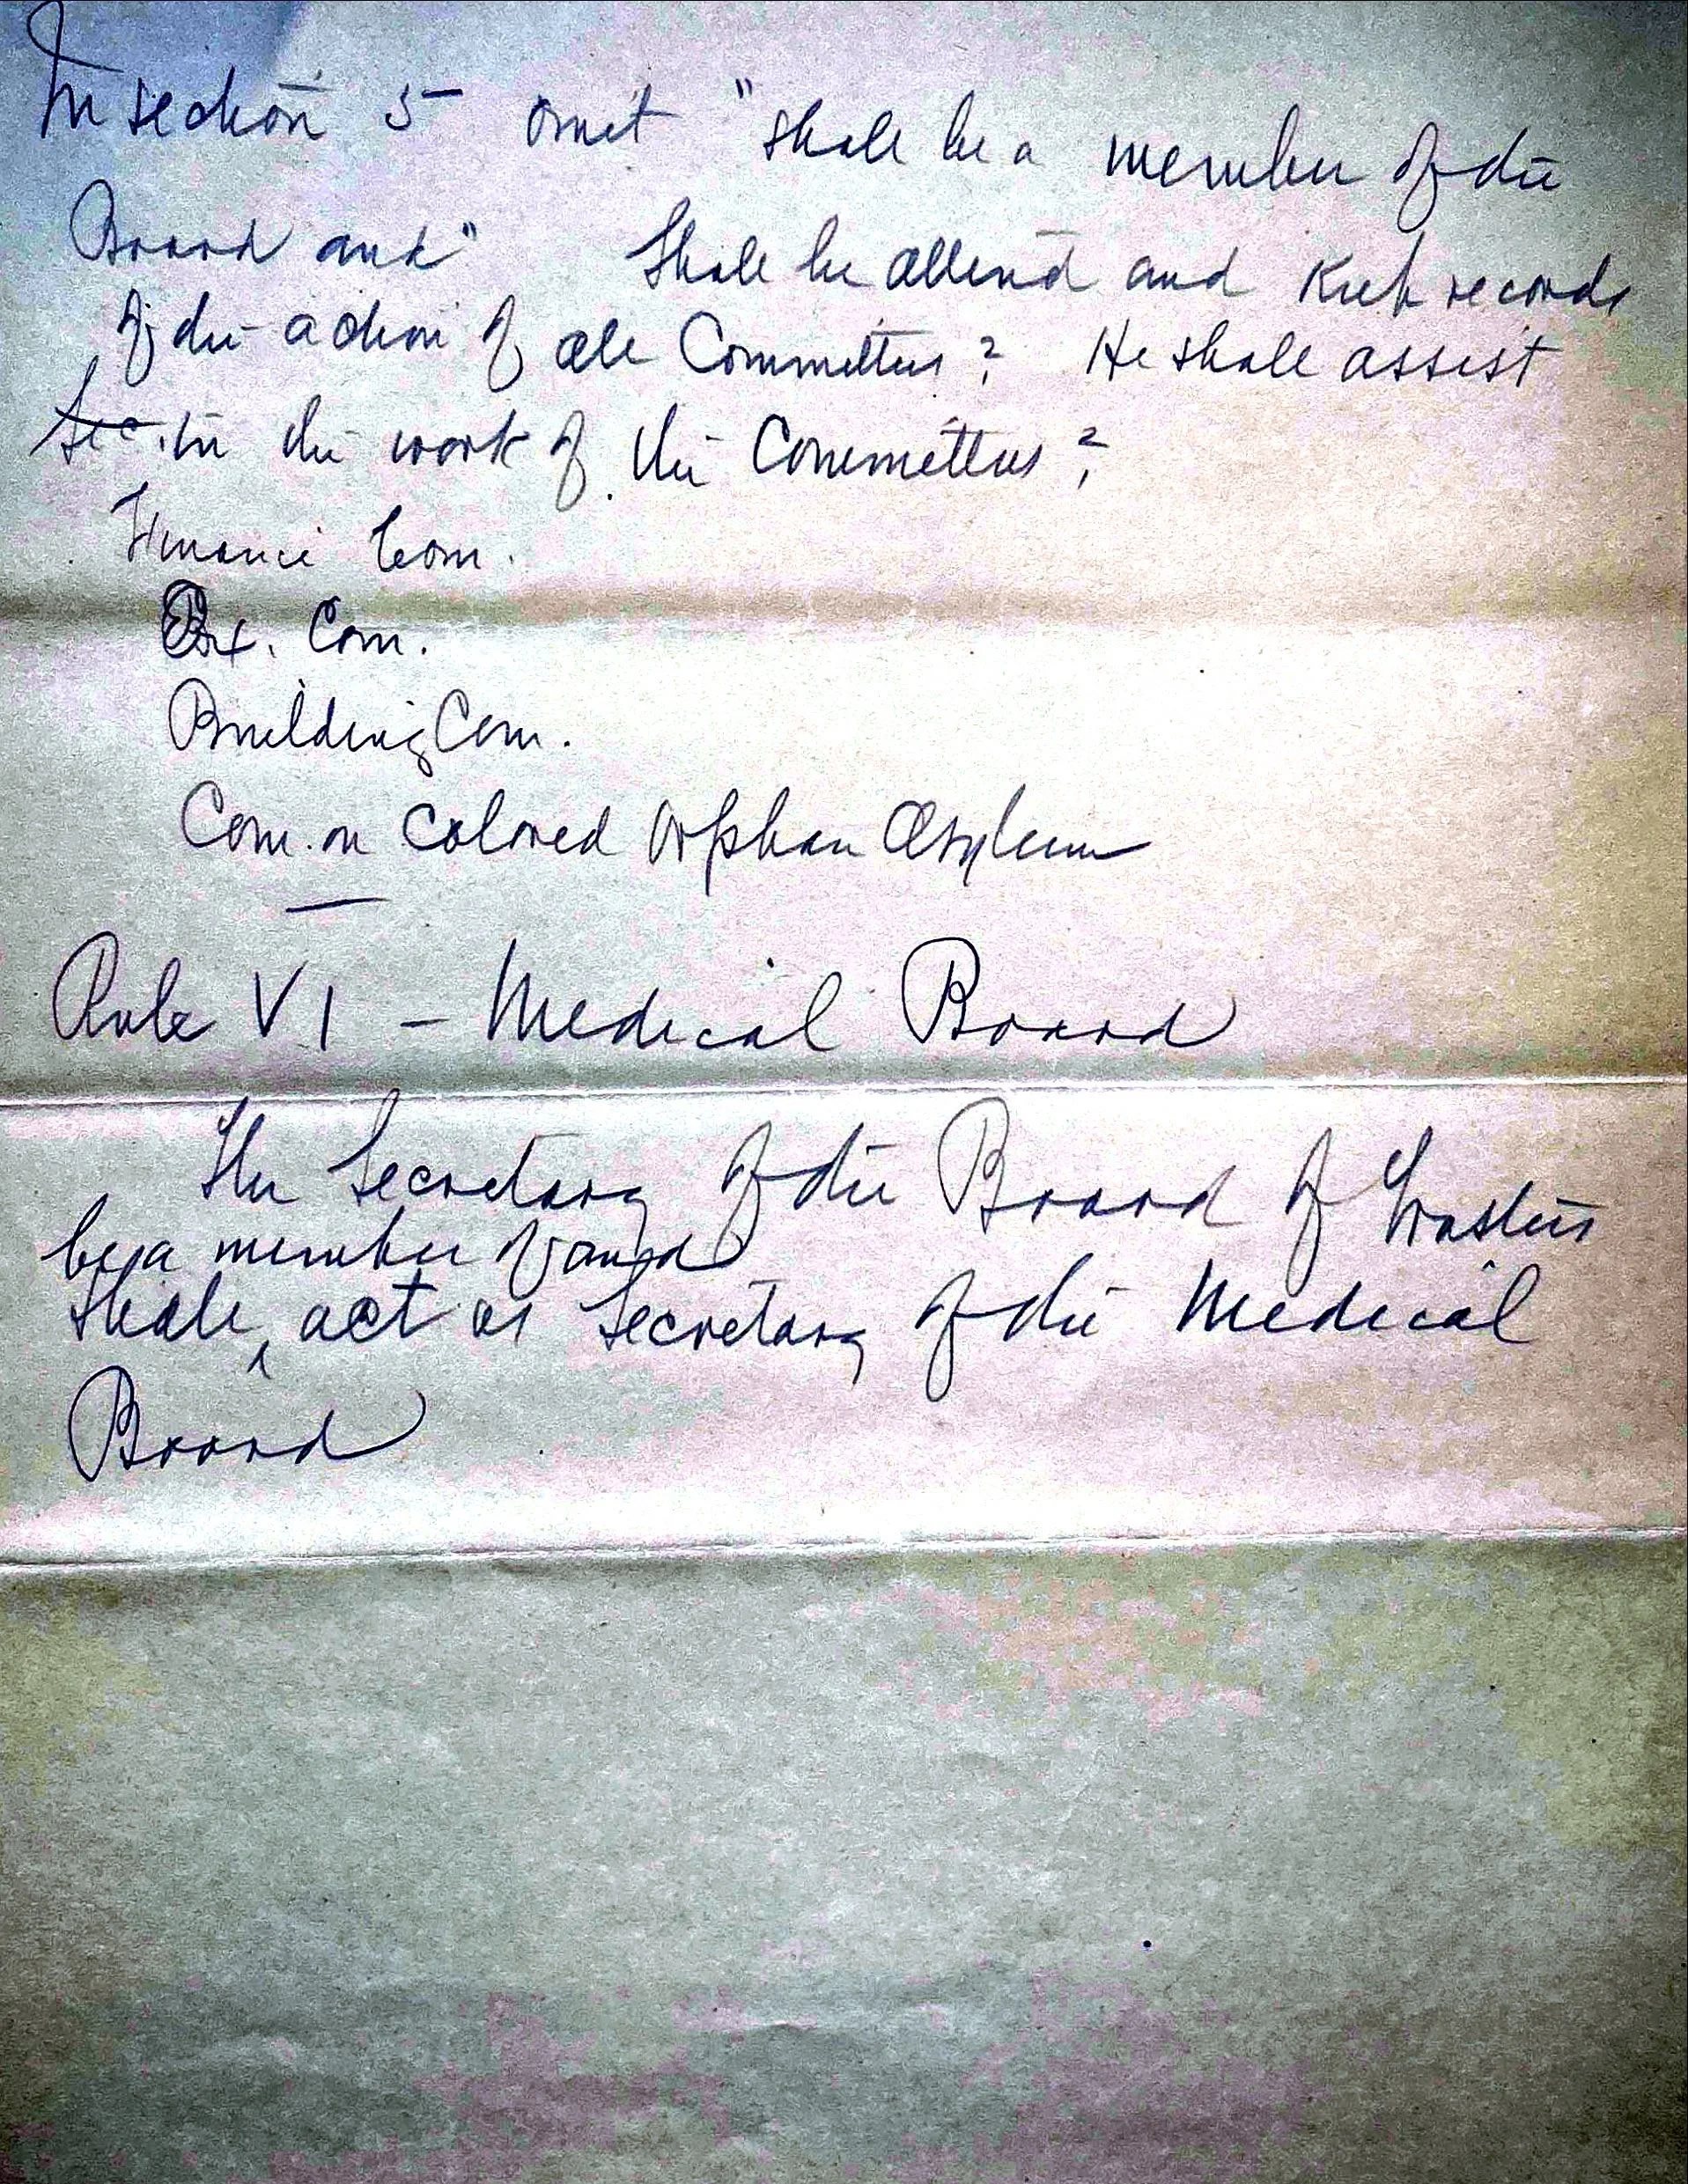 In section 5 omit "shall be a member of the
Board and" Shall he attend and keep records
of the action of all Committees? He shall assist
Sec. in the work of the Committees?
Finance Com.
Ex. Com.
Building Com.
Com. on Colored Orphan Asylum
Rule VI - Medical Board
The Secretary of the Board of Trustees
be a member of and
shall ^ act as Secretary of the Medical
Board